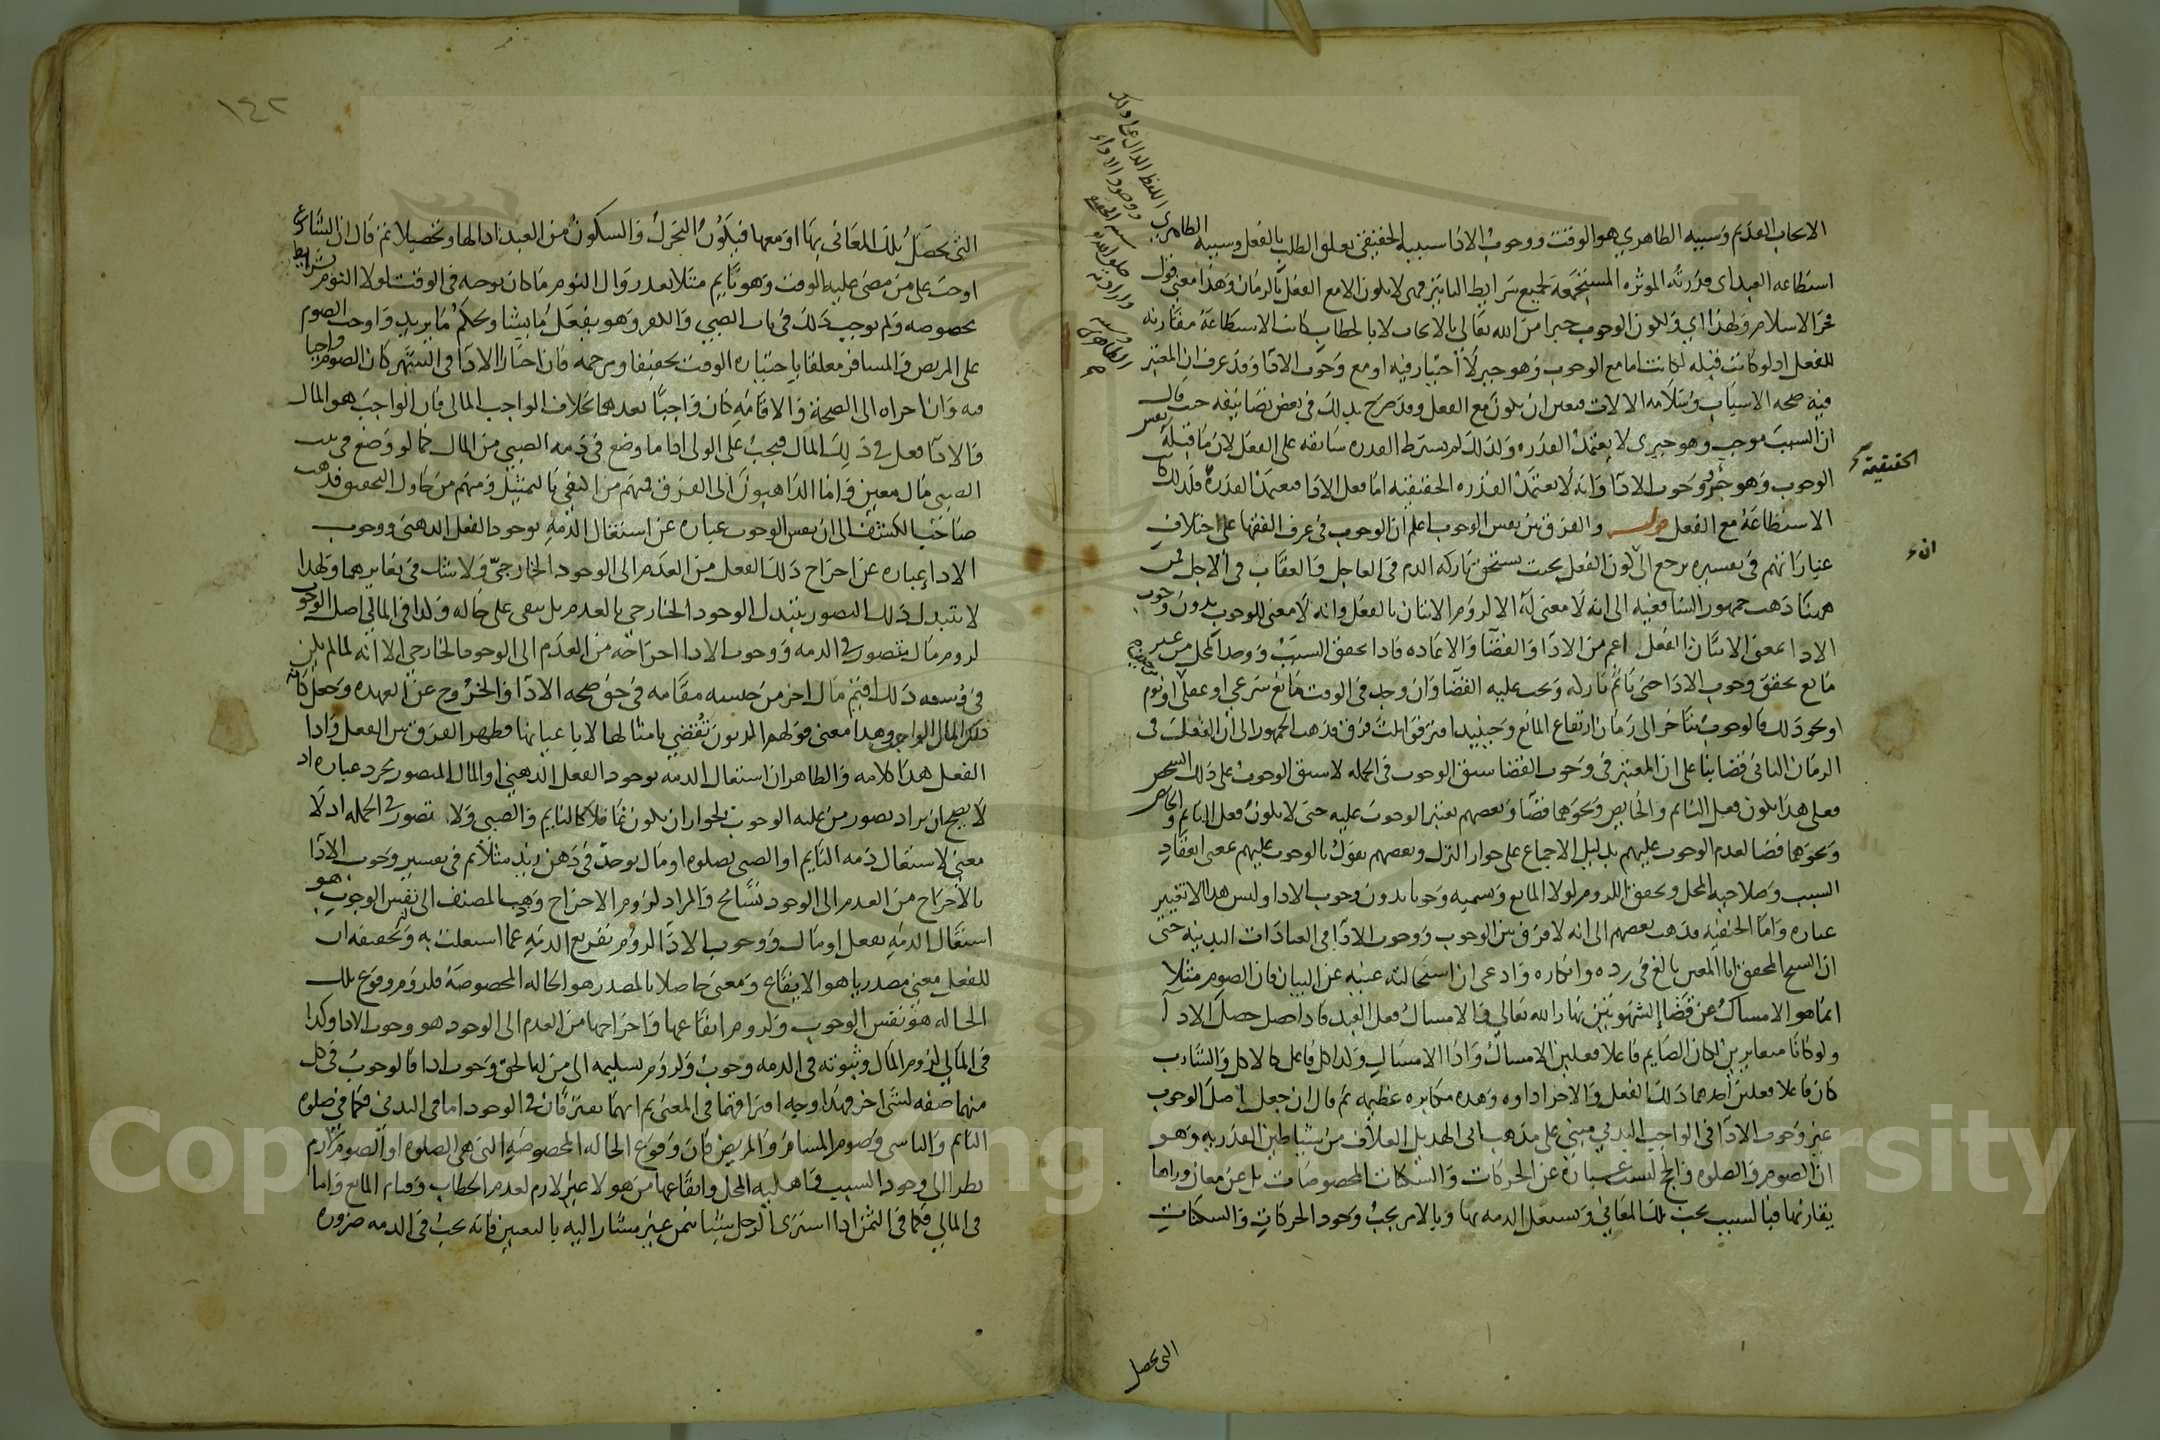 الايجاب القديم وسببه الظاهري هو الوقت ووجوب الادا سببه الحقيقي تعلق الطلب بالفعل وسببه الظاهري
استطاعه العبد اى قدرته الموثره المستجمعة لجميع شرايط التاثير فهى لا يكون الا مع الفعل بالزمان وهذا معنى قول
فخر الاسلام ولهذا اي ولكون الوجوب جبرا من الله تعالى بالايجاب لا بالخطاب كانت الاستطاعة مقارنه
للفعل اذ لو كانت قبله لكانت اما مع الوجوب وهو جبر لا اختيار فيه او مع وجوب الادا وقد عرف ان المعتبر
فيه صحه الاسباب وسلامه الالات فتعين ان يكون مع الفعل وقد صرح بذلك في بعض تصانيفه حيث قال
ان السبب موجب وهو جبرى لا يعتمد القدره ولذلك لم يشترط القدره سابقه على الفعل لان ما قبله نفس
الوجوب وهو جبر ووجوب الادا وانه لا يعتمد القدره الحقيقيه اما فعل الادا فيعتمد القدرة فلذلك كانت
الاستطاعة مع الفعل قوله والفرق بين نفس الوجوب اعلم ان الوجوب في عرف الفقها على اختلاف
عباراتهم في تفسيره يرجع الى كون الفعل بحيث يستحق تاركه الذم في العاجل والعقاب في الاجل فمن
ههنا ذهب جمهور الشافعيه الى انه لا معنى له الا لزوم الاتيان بالفعل وانه لا معنى للوجوب بدون وجوب
الادا بمعنى الاتيان بالفعل اعم من الادا والقضا والاعاده فاذا تحقق السبب ووجد المحل من غير
مانع تحقق وجوب الادا حتى ياثم تاركه ويجب عليه القضا وان وجد في الوقت مانع شرعي او عقلي او نوم
او نحو ذلك فالوجوب متاخر الى زمان ارتفاع المانع وحينيذ افترقوا ثلث فرق فذهب الجمهور الى ان الفعل في
الزمان الثاني قضا بنا على ان المعتبر في وجوب القضا سبق الوجوب في الجمله لا سبق الوجوب على ذلك الشخص
فعلى هذا يكون فعل النايم والحايض ونحوهما قضا وبعضهم يعتبر الوجوب عليه حتى لا يكون فعل النايم والحايض
ونحوهما قضا لعدم الوجوب عليهم بدليل الاجماع على جواز الترك وبعضهم يقول بالوجوب عليهم بمعنى انعقاد
السبب وصلاحيه المحل وتحقق اللزوم لولا المانع ويسميه وجوبا بدون وجوب الادا وليس هذا الا تغيير
عباره واما الحنفيه فذهب بعضهم الى انه لا فرق بين الوجوب ووجوب الادا في العبادات البدنيه حتى
ان الشيخ المحقق ابا المعين بالغ في رده وانكاره وادعى ان استحالته غنيه عن البيان فان الصوم مثلا
انما هو الامساك عن قضا الشهوتين نهارا لله تعالى والامساك فعل العبد فاذا حصل حصل الادا
ولو كانا متغايرين لكان الصايم فاعلا فعلين الامساك وادا الامساك وكذا كل فاعل كالاكل والشارب
كان فاعلا فعلين احدهما ذلك الفعل والاخر اداوه وهذه مكابره عظيمه ثم قال ان جعل اصل الوجوب
غير وجوب الادا في الواجب البدني مبني على مذهب ابى الهذيل العلاف من شياطين القدريه وهو
ان الصوم والصلوه والحج ليست عبارة عن الحركات والسكنات المخصوصات بل عن معان وراها
يقارنها فبالسبب يجب تلك المعاني ويشتغل الذمه بها وبالامر يجب وجود الحركات والسكنات
الحقيقية
ان
التى تحصل
١٤٢
التى تحصل تلك المعاني بها او معها فيكون التحرك والسكون من العبد ادا لها وتحصيلا ثم قال ان الشارع
اوجب على من مضى عليه الوقت وهو نايم مثلا بعد زوال النوم ما كان يوجبه في الوقت لولا النوم بشرايط
مخصوصه ولم يوجب ذلك في باب الصبي والكفر وهو يفعل ما يشا ويحكم ما يريد واوجب الصوم
على المريض والمسافر معلقا باختياره الوقت تخفيفا ومرحمه فان اختار الادا في الشهر كان الصوم واجبا
فيه وان اخراه الى الصحة والاقامة كان واجبا بعدهما بخلاف الواجب المالى فان الواجب هو المال
والادا فعل في ذلك المال فيجب على الولى ادا ما وضع في ذمه الصبي من المال كما لو وضع في بيت
الصبى مال معين واما الذاهبون الى الفرق فمنهم من اكتفي بالتمثيل ومنهم من حاول التحقيق فذهب
صاحب الكشف الى ان نفس الوجوب عباره عن اشتغال الذمه بوجود الفعل الذهني ووجوب
الادا عباره عن اخراج ذلك الفعل من العدم الى الوجود الخارجي ولا شك في تغايرهما ولهذا
لا يتبدل ذلك التصور بتبدل الوجود الخارجي بالعدم بل يبقى على حاله وكذا في المالي اصل الوجوب
لزوم مال متصور في الذمه ووجوب الادا اخراجه من العدم الى الوجود الخارجي الا انه لما لم يكن
في وسعه ذلك اقيم مال اخر من جنسه مقامه في حق صحه الادا والخروج عن العهده وجعل كانه
ذلك المال الواجب وهذا معنى قولهم الديون تقضي بامثالها لا باعيانها فظهر الفرق بين الفعل وادا
الفعل هذا كلامه والظاهر ان اشتغال الذمه بوجود الفعل الذهني او المال المتصور مجرد عباره اذ
لا يصح ان يراد تصور من عليه الوجوب لجواز ان يكون غافلا كالنايم والصبى ولا تصور في الجمله اذ لا
معنى لاشتغال ذمه النايم او الصبى بصلوه او مال يوجد في ذهن زيد مثلا ثم في تفسير وجوب الادا
بالاخراج من العدم الى الوجود تسامح والمراد لزوم الاخراج وذهب المصنف الى نفس الوجوب هو
اشتغال الذمه بفعل او مال ووجوب الادا لزوم تفريغ الذمه عما اشتغلت به وتحقيقه ان
للفعل معنى مصدريا هو الايقاع ومعنى حاصلا بالمصدر هو الحاله المخصوصة فلزوم وقوع تلك
الحاله هو نفس الوجوب ولزوم ايقاعها واخراجها من العدم الى الوجود هو وجوب الادا وكذا
في المالي لزوم المال وثبوته في الذمه وجوب ولزوم تسليمه الى من له الحق وجوب ادا فالوجوب في كل
منهما صفه لشي اخر فهذا وجه افتراقهما في المعنى ثم انهما يفترقان في الوجود اما في البدني فكما في صلوه
النايم والناسى وصوم المسافر والمريض فان وقوع الحاله المخصوصه التى هى الصلوه او الصوم لازم
نظرا الى وجود السبب واهليه المحل وايقاعها من هولا غير لازم لعدم الخطاب وقيام المانع واما
في المالي فكما في الثمن اذا اشترى الرجل شيئا بثمن غير مشار اليه بالتعيين فانه يجب في الذمه ضروره